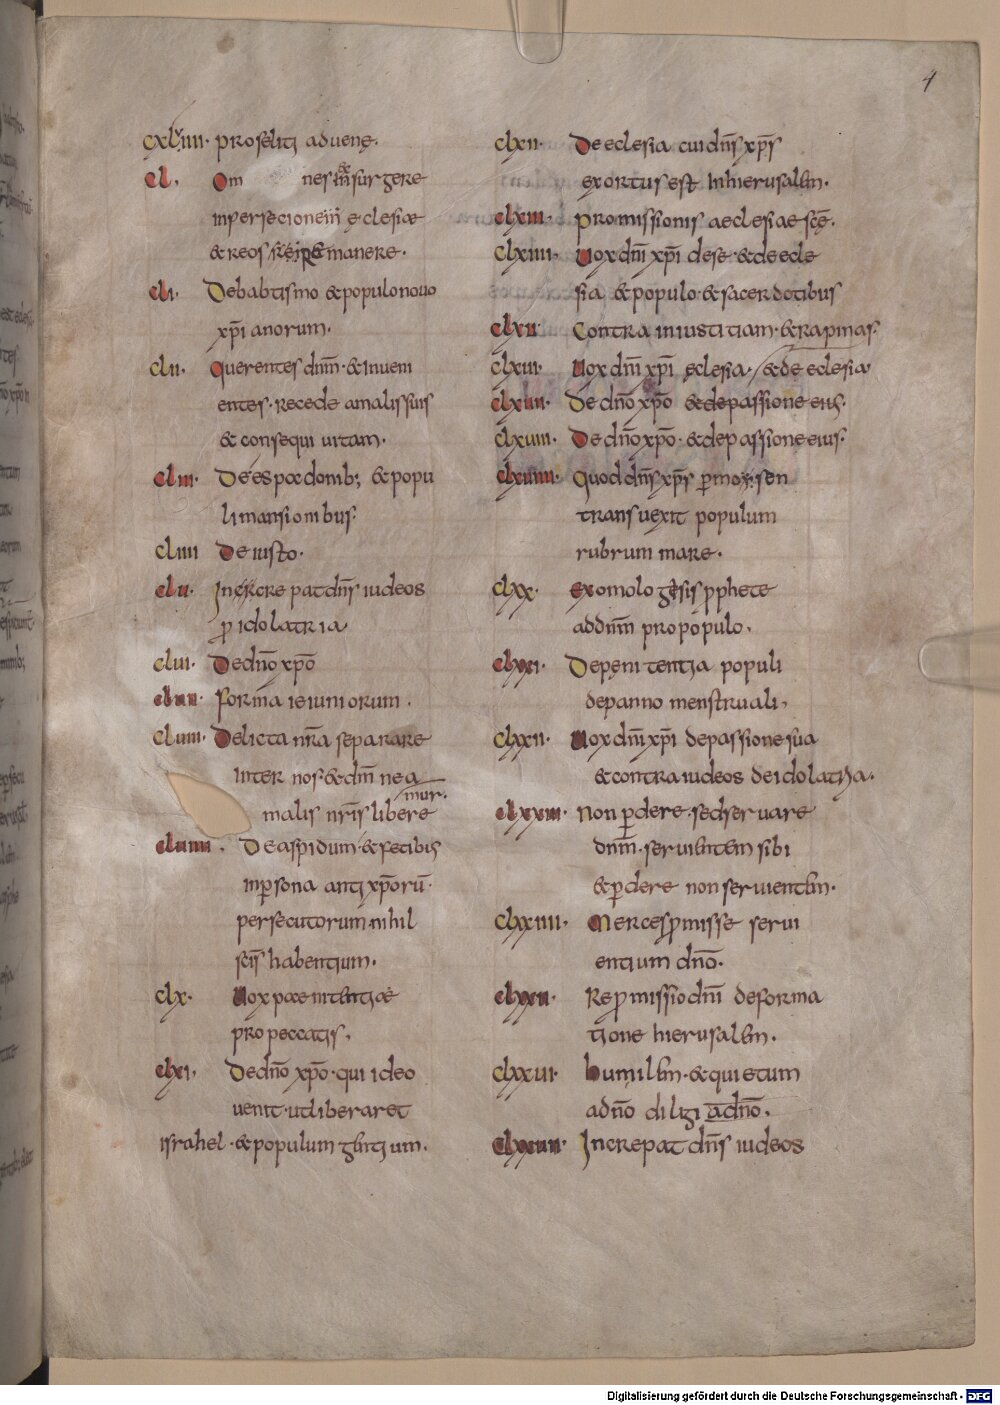 4
cxlviiii· proselitȩ advenȩ·
cl. Om nes insurgere
inpersecionem ȩclesiæ
& reos semanere·
cli· De babtismo & populo novo
xp̄i anorum·
clii· Querentes dnm̄·&inveni
entes· recede amalissuis
& consequi vitam·
cliii· De espoedonib; & popu
li mansionibus·
cliiii De iusto·
clv· Increpat dn̄s iudeos
p̄ idolatria
clvi· De dn̄o xp̄o
clvii· forma ieiuniorum·
clviii· Delicta nr̄a separare
inter nos·& dm̄ ne a
malis nr̄is libere
mur·
clviiii· De aspidum·& fetibus
in p̄sona anti xp̄orū·
persecutorum·nihil
sc̄is habentium·
clx· Vox paenitentiae
pro peccatis·
clxi· De dn̄o xp̄o·qui ideo
venit·ut liberaret
israhel·& populum gentium·
clxii· De eclesia cui dn̄s xp̄s
exortus est In hierusalem·
clxiii· Promissionis aeclesiae sc̄ȩ·
clxiiii· Vox dn̄i xp̄i de se·& de ecle
sia & populo·& sacerdotibus
clxv· Contra iniustitiam·& rapinas·
clxvi· Vox dn̄i xp̄i ȩclesia·/& de eclesia
clxvii· De dn̄o xp̄o & de passione eius·
clxviii· De dn̄o xp̄o·& de passione eius·
clxviiii· Quod dn̄s xp̄s p̄ moysen
transvexit populum
rubrum mare·
clxx· exomologesis pphete
ad dnm̄ pro populo·
clxxi· De pȩnitentia populi
de panno menstruali·
clxxii· Vox dn̄i xp̄i de passione sua
& contra iudeos de idolatria·
clxxiii· Non p̄dere·sed servare
dnm̄·servientem sibi
& p̄dere non servientem·
clxxiiii· Merces pmisse servi
entium dn̄o·
clxxv· Repmissio dn̄i de forma
tione hierusalem·
clxxvi· humilem·& quietum
a dn̄o diligi a dn̄o·
clxxvii· Increpat dn̄s iudeos
Digitalisierung gefördert durch die Deutsche Forschungsgemeinschaft - DFG